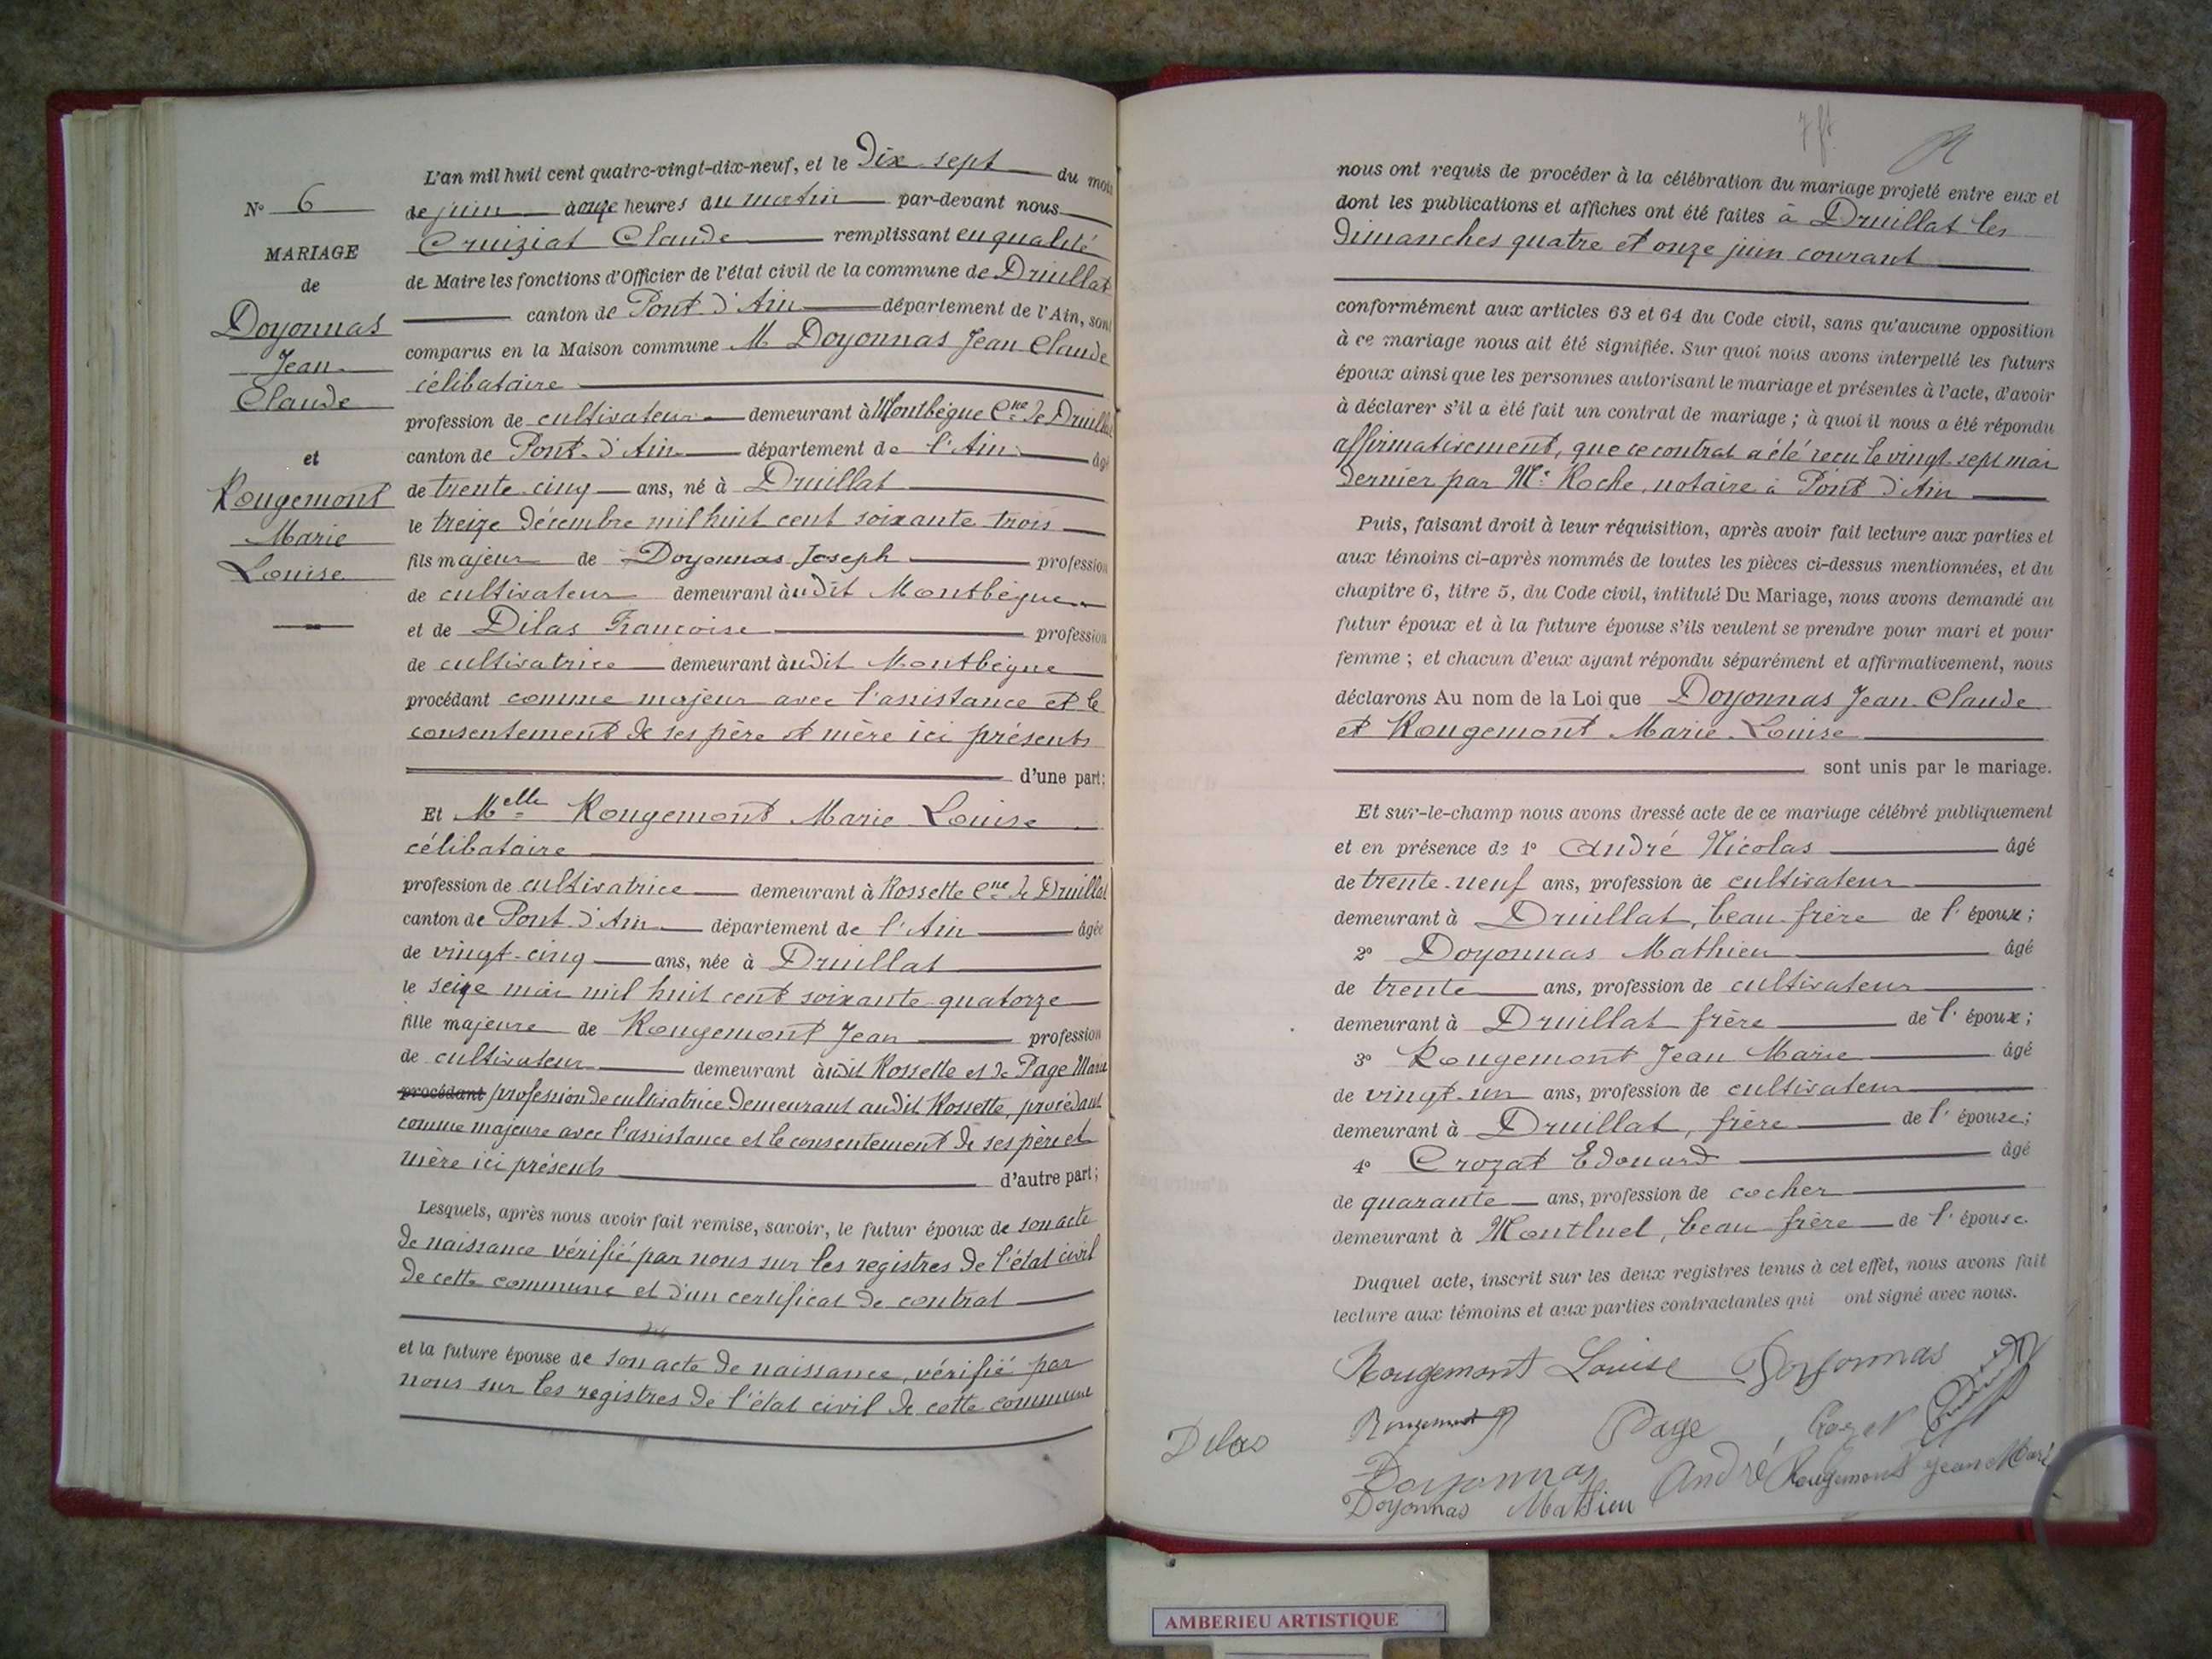 L'an mil huit cent quatre-vingt-dix-neuf, et le Dix sept du mois
N° 6
de juin à onze heures du matin par-devant nous
MARIAGE
Cruiziat Claude remplissant en qualité
de
de Maire les fonctions d'Officier de l'état civil de la commune de Druillat
canton de Pont d'Ain département de l'Ain, sont
Doyonnas
comparus en la Maison commune M Doyonnas Jean Claude
Jean
célibataire
Claude
profession de cultivateur demeurant à Montbègue Cne de Druillat
et
canton de Pont-d'Ain département de l'Ain âgé
Rougemont
de trente cinq ans, né à Druillat
Marie
le treize décembre mil huit cent soixante trois
Louise
fils majeur de Doyonnas Joseph profession
de cultivateur demeurant audit Montbègue
et de Dilas Françoise profession
de cultivatrice demeurant audit Montbègue
procédant comme majeur avec l'assistance et le
consentement de ses père et mère ici présents
d'une part;
Et Melle Rougemont Marie Louise
célibataire
profession de cultivatrice demeurant à Rossette Cne de Druillat
canton de Pont d'Ain département de l'Ain âgée
de vingt-cinq ans, née à Druillat
le seize mai mil huit cent soixante quatorze
fille majeure de Rougemont Jean profession
de cultivateur demeurant audit Rossette et de Page Marie
procédant profession de cultivatrice demeurant audit Rossette, procédant
comme majeure avec l'assistance et le consentement de ses père et
mère ici présents d'autre part;
Lesquels, après nous avoir fait remise, savoir, le futur époux de son acte
de naissance vérifié par nous sur les registres de l'état civil
de cette commune et d'un certificat de contrat
et la future épouse de son acte de naissance, vérifié par
nous sur les registres de l'état civil de cette commune
nous ont requis de procéder à la célébration du mariage projeté entre eux et
dont les publications et affiches ont été faites à Druillat les
dimanches quatre et onze juin courant
conformément aux articles 63 et 64 du Code civil, sans qu'aucune opposition
à ce mariage nous ait été signifiée. Sur quoi nous avons interpellé les futurs
époux ainsi que les personnes autorisant le mariage et présentes à l'acte, d'avoir
à déclarer s'il a été fait un contrat de mariage; à quoi il nous a été répondu
affirmativement, que ce contrat a été reçu le vingt-sept mai
dernier par Me Roche, notaire à Pont d'Ain
Puis, faisant droit à leur réquisition, après avoir fait lecture aux parties et
aux témoins ci-après nommés de toutes les pièces ci-dessus mentionnées, et du
chapitre 6, titre 5, du Code civil, intitulé Du Mariage, nous avons demandé au
futur époux et à la future épouse s'ils veulent se prendre pour mari et pour
femme; et chacun d'eux ayant répondu séparément et affirmativement, nous
déclarons Au nom de la Loi que Doyonnas Jean Claude
et Rougemont Marie Louise
sont unis par le mariage.
Et sur-le-champ nous avons dressé acte de ce mariage célébré publiquement
et en présence de 1° André Nicolas âgé
de trente-neuf ans, profession de cultivateur
demeurant à Druillat, beau frère de l'époux;
2° Doyonnas Mathieu âgé
de trente ans, profession de cultivateur
demeurant à Druillat frère de l'époux;
3° Rougemont Jean Marie âgé
de vingt-un ans, profession de cultivateur
demeurant à Druillat, frère de l'épouse;
4° Crozat Edouard âgé
de quarante ans, profession de cocher
demeurant à Montluel, beau frère de l'épouse
Duquel acte, inscrit sur les deux registres tenus à cet effet, nous avons fait
lecture aux témoins et aux parties contractantes qui ont signé avec nous.
Rougemont Louise Doyonnas
Rougemont Page
Dilas
Doyonnas André Rougemont Jean Marie
Doyonnas Mathieu
AMBERIEU ARTISTIQUE